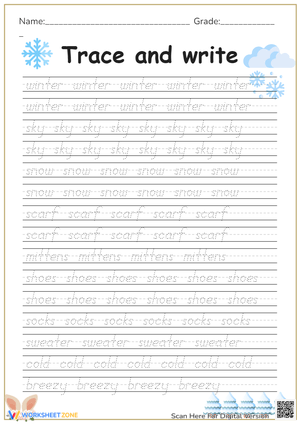 Name:________________________________ Grade:____________
_
Trace and write
winter winter winter winter winter
winter winter winter winter winter
sky sky sky sky sky sky sky sky
sky sky sky sky sky sky sky sky
snow snow snow snow snow snow
snow snow snow snow snow snow
scarf scarf scarf scarf scarf
scarf scarf scarf scarf scarf
mittens mittens mittens mittens
shoes shoes shoes shoes shoes shoes
shoes shoes shoes shoes shoes shoes
socks socks socks socks socks socks
sweater sweater sweater sweater
cold cold cold cold cold cold cold
breezy breezy breezy breezy breezy
WORKSHEETZONE
Scan Here For Digital Version